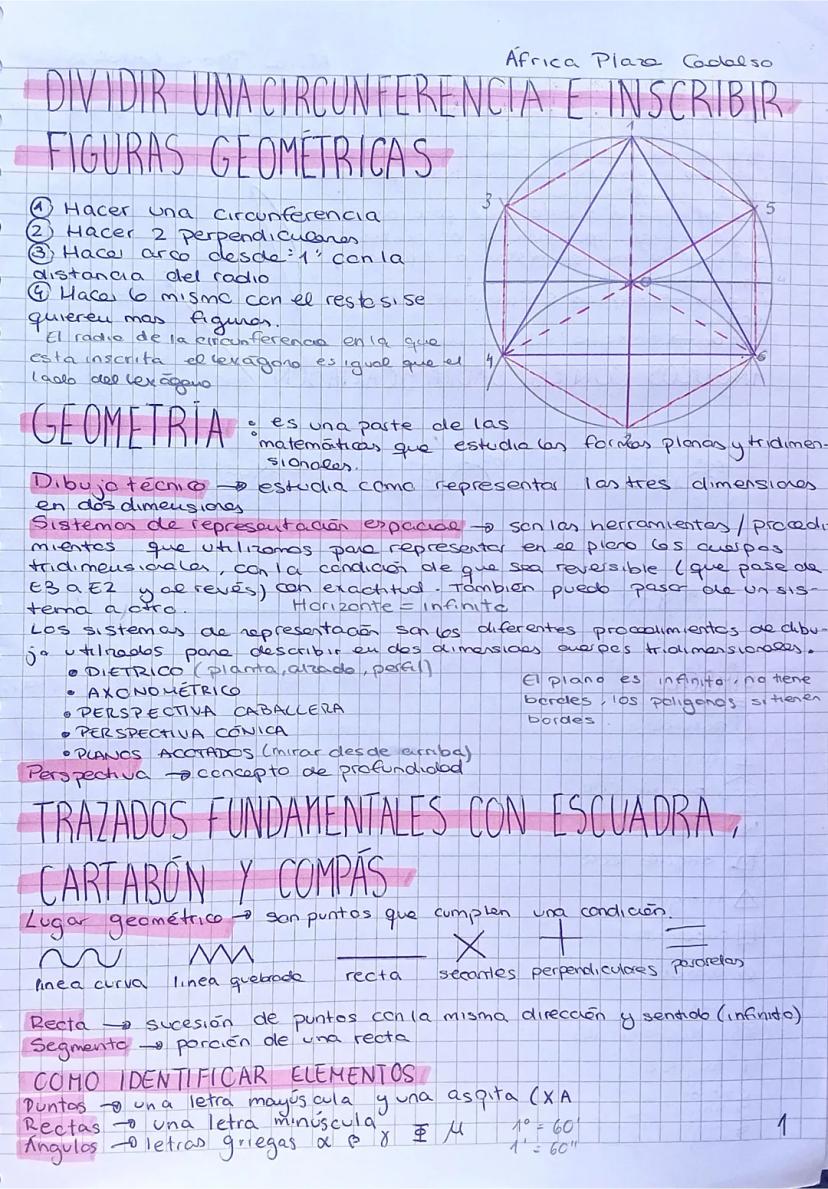 África Plaza Cadalso
DIVIDIR UNA CIRCUNFERENCIA E INSCRIBIR
FIGURAS GEOMÉTRICAS
① Hacer una circunferencia
② Hacer 2 perpendiculares
③ Hacer arco desde "1" con la
distancia del radio
④ Hacer lo mismo con el resto si se
quieren mas figuras.
El radio de la circunferencia en la que
esta inscrita el exágono es igual que el
lado del exágono
1
3
5
4
6
2
GEOMETRÍA : es una parte de las
matemáticas que estudia las formas planas y tridimen-
sionales.
Dibujo técnico → estudia como representar las tres dimensiones
en dos dimensiones
Sistemas de representación espacial → son las herramientas / procedi-
mientos que utilizamos para representar en el plano los cuerpos
tridimensionales, con la condición de que sea reversible (que pase de
E3 a E2 y al revés) con exactitud. También puedo pasar de un sis-
tema a otro. Horizonte = infinito
Los sistemas de representación son los diferentes procedimientos de dibu-
jo utilizados para describir en dos dimensiones cuerpos tridimensionales.
• DIÉTRICO (planta, alzado, perfil)
• AXONOMÉTRICO
• PERSPECTIVA CABALLERA
• PERSPECTIVA CÓNICA
• PLANOS ACOTADOS (mirar desde arriba)
El plano es infinito, no tiene
bordes, los polígonos si tienen
bordes.
Perspectiva → concepto de profundidad
TRAZADOS FUNDAMENTALES CON ESCUADRA,
CARTABÓN Y COMPÁS
Lugar geométrico → son puntos que cumplen una condición.
linea curva linea quebrada recta secantes perpendiculares paralelas
Recta → sucesión de puntos con la misma dirección y sentido (infinito)
Segmento → porción de una recta
COMO IDENTIFICAR ELEMENTOS
Puntos → una letra mayúscula y una aspita (X A
Rectas → una letra minúscula
Ángulos → letras griegas α β γ Φ μ
1º = 60'
1' = 60"
1